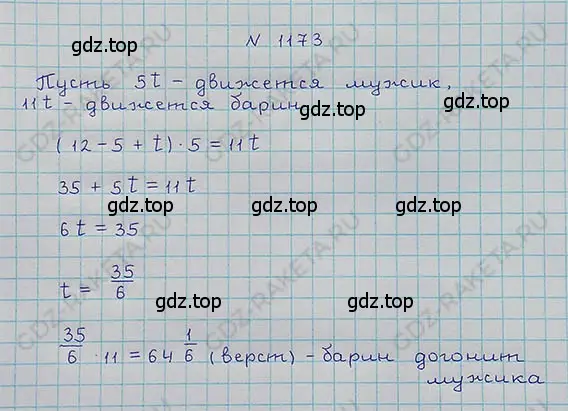 gdz.top
N 1173
gdz.top
Пусть 5t – движется мужик,
gdz.top
11t – движется барин
gdz.top
(12 – 5 + t) · 5 = 11t
35 + 5t = 11t
gdz.top
gdz.top
6t = 35
t = 35/6
gdz.top
gdz.top
35/6 · 11 = 64 1/6 (верст) – барин догонит
мужика
GDZ-RAKETA.RU
GDZ-RAKETA.RU
GDZ-RAKETA.RU